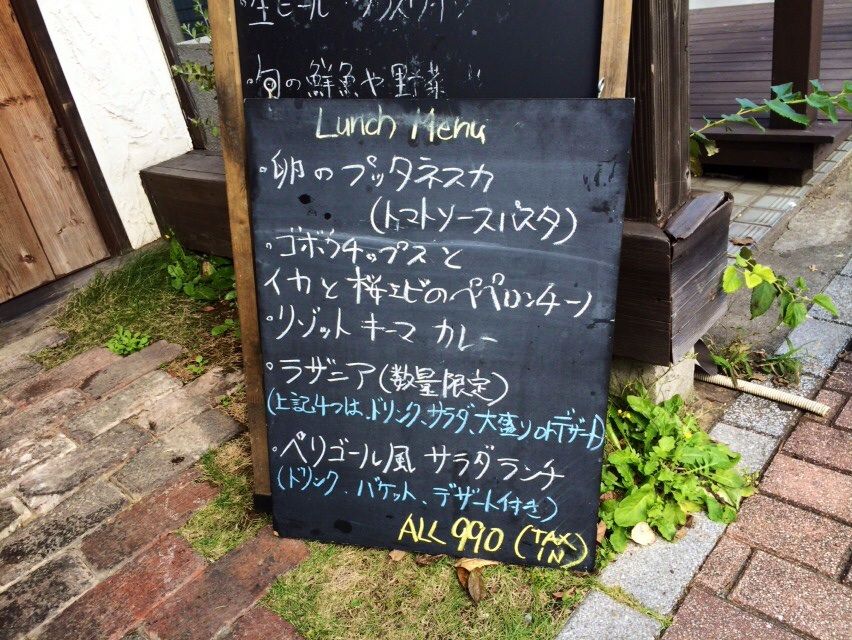 ・生ビール・グラスワイン
・旬の鮮魚や野菜
Lunch Menu
・卵のプッタネスカ
(トマトソースパスタ)
・ゴボウチップスと
イカと桜エビのペペロンチーノ
・リゾットキーマカレー
・ラザニア(数量限定)
(上記4つは、ドリンク、サラダ、大盛りorデザート)
・ペリゴール風サラダランチ
(ドリンク、バケット、デザート付き)
ALL 990 (TAX IN)